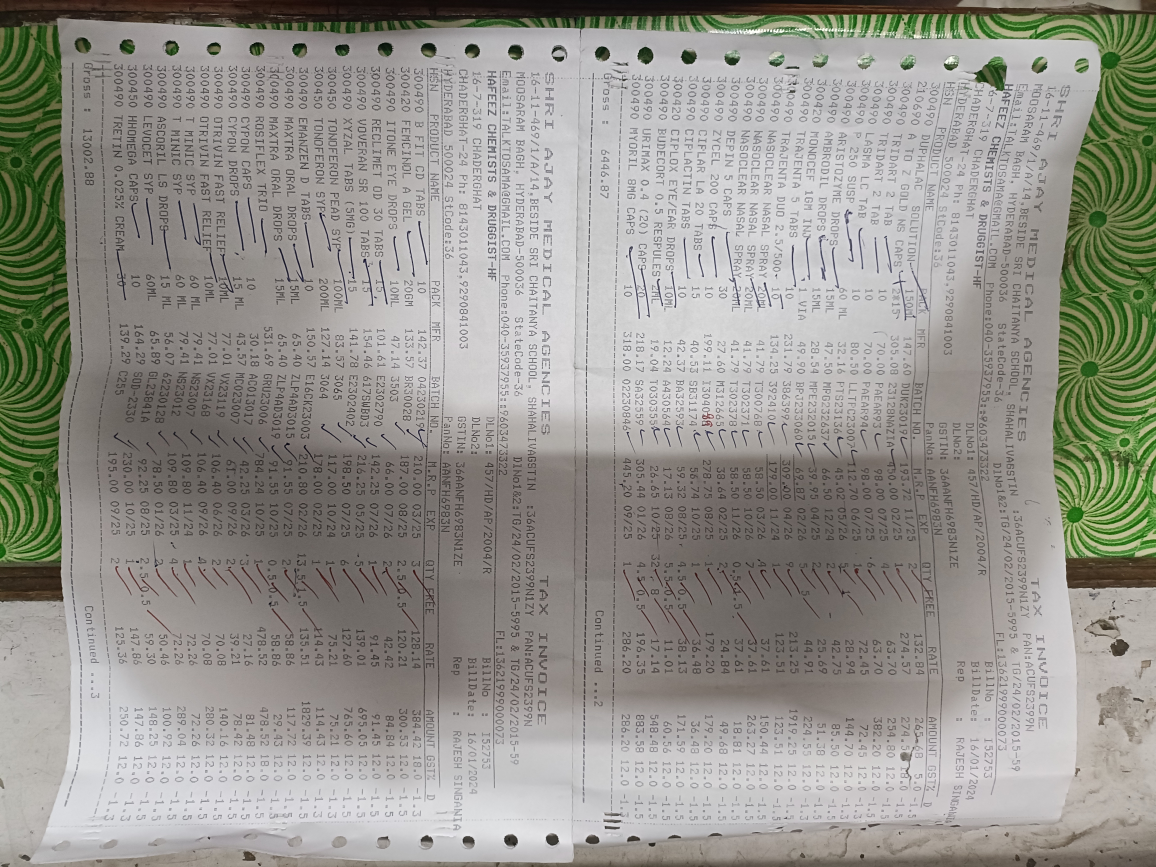 SHRI AJAY MEDICAL AGENCIES TAX INVOICE
16-11-469/1/A/14,BESIDE SRI CHAITANYA SCHOOL, SHAHALIVABSTIN :36ACUFS2399N1ZY PAN:ACUFS2399N
MOOSARAM BAGH, HYDERABAD-500036 StateCode-36 DlNo1&2:TG/24/02/2015-5995 & TG/24/02/2015-59
Email:TALKTOSAMA@GMAIL.COM Phone:040-35937955::9603473322 FL:13621999000073
HAFEEZ CHEMISTS & DRUGGIST-HF DLNo1: 457/HD/AP/2004/R BillNo : I52753
16-7-319 CHADERGHAT DLNo2: BillDate: 16/01/2024
CHADERGHAT-24 Ph: 8143011043,9290841003 GSTIN: 36AANFH6983N1ZE Rep : RAJESH SINGANIA
HYDERABAD 500024 StCode:36 PanNo: AANFH6983N
HSN PRODUCT NAME PACK MFR BATCH NO. M.R.P EXP QTY FREE RATE AMOUNT GST% D
300490 DUPHALAC SOLUTION 150ML 147.60 193.72 11/25 2 132.84 265.68
210690 A TO Z GOLD NS CAPS 305.08 1 274.57
300490 TRIDART 2 TAB 10 70.00 PAEAR93 98.00 07/25 4 63.70 254.80 12.0 -1.5
300490 TRIDART 2 TAB 10 70.00 98.00 6 63.70 382.20 12.0 -1.5
300490 TAB 10 PAEAR94 1 72.45 72.45 12.0 -1.5
300490 P 250 SUSP 60 ML 06/25 28.94 144.70 12.0
300490 ARISTOZYME DROPS 15ML 45.00 2 42.75 85.50 12.0 -1.5
300490 AMBRODIL DROPS 15ML 28.54 39.95 04/25 2 25.69 51.38 12.0 -1.5
300420 MONOCEF 1GM INJ 1 VIA 49.90 69.87 02/26 5 44.91 224.55 12.0 -1.5
300490 TRAJENTA 5 TABS 10 231.79 04/25 9 213.25 1919.25 12.0
300490 TRAJENTA DUO 2.5/500 10 134.25 179.00 11/24 1 123.51 123.51 12.0
300490 NASOCLEAR NASAL SPRAY 20ML 41.79 T300768 58.50 03/26 4 37.61 150.44 12.0 -1.5
300490 NASOCLEAR NASAL SPRAY 20ML 41.79 T302371 58.50 10/26 7 37.61 263.27 12.0 -1.5
300490 NASOCLEAR NASAL SPRAY 20ML 41.79 T302378 58.50 11/26 0.5 37.61 18.81 12.0 -1.5
300490 DEPIN 5 CAPS 30 27.60 MS12665 38.64 02/25 2 24.84 49.68 12.0 -1.5
300490 ZYCEL 200 CAPS 10 199.11 278.75 08/25 1 179.20 179.20 12.0 -1.5
300490 CIPLAR LA 20 TABS 15 40.53 SB31174 56.74 10/25 1 36.48 36.48 12.0 -1.5
300490 CIPLACTIN TABS 10 42.37 BA32593 59.32 08/25 4.5 0.5 38.13 171.59 12.0 -1.5
300420 CIPLOX EYE/EAR DROPS 10ML 12.24 AA30564 17.13 08/25 5.5 11.01 60.56 12.0 -1.5
300490 BUDECORT 0.5 RESPULES 2ML 19.04 TO30355 26.65 10/25 32 8 17.14 548.48 12.0 -1.5
300490 URIMAX 0.4 (20) CAPS 20 218.17 SA32559 305.44 01/25 4.5 0.5 196.35 883.58 12.0 -1.5
300490 MYORIL 8MG CAPS 10 318.00 02230846 445.20 09/25 1 286.20 286.20 12.0 -1.5
Gross : 6446.87 Continued ...2
SHRI AJAY MEDICAL AGENCIES TAX INVOICE
16-11-469/1/A/14,BESIDE SRI CHAITANYA SCHOOL, SHAHALIVABSTIN :36ACUFS2399N1ZY PAN:ACUFS2399N
MOOSARAM BAGH, HYDERABAD-500036 StateCode-36 DlNo1&2:TG/24/02/2015-5995 & TG/24/02/2015-59
Email:TALKTOSAMA@GMAIL.COM Phone:040-35937955::9603473322 FL:13621999000073
HAFEEZ CHEMISTS & DRUGGIST-HF DLNo1: 457/HD/AP/2004/R BillNo : I52753
16-7-319 CHADERGHAT DLNo2: BillDate: 16/01/2024
CHADERGHAT-24 Ph: 8143011043,9290841003 GSTIN: 36AANFH6983N1ZE Rep : RAJESH SINGANIA
HYDERABAD 500024 StCode:36 PanNo: AANFH6983N
HSN PRODUCT NAME PACK MFR BATCH NO. M.R.P EXP QTY FREE RATE AMOUNT GST% D
300490 B FIT CD TABS 10 142.37 210.00 03/25 3 128.14 384.42 18.0 -1.5
300420 FEMCINOL A GEL 20GM 133.57 187.00 08/25 2.5 0.5 120.21 300.53 12.0 -1.5
300490 ITONE EYE DROPS 10ML 47.14 3503 66.00 07/26 2 42.42 84.84 12.0 -1.5
300490 RECLIMET OD 30 TABS 15 101.61 E2302790 142.25 07/26 1 91.45 91.45 12.0 -1.5
300490 VOVERAN SR 100 TABS 15 154.46 617SWB03 216.25 05/25 5 139.01 695.05 12.0 -1.5
300490 XYZAL TABS (5MG) 15 141.78 E2302402 198.50 07/25 6 127.60 765.60 12.0 -1.5
300450 TONOFERON PEAD SYP 100ML 83.57 3065 117.00 10/24 1 75.21 75.21 12.0 -1.5
300450 TONOFERON SYP 200ML 127.14 3064 178.00 10/24 1 114.43 114.43 12.0 -1.5
300490 EMANZEN D TABS 10 150.57 E1ACK23003 210.80 07/25 13.5 1.5 135.51 1829.39 12.0 -1.5
300490 MAXTRA ORAL DROPS 15ML 65.40 ZLP4AD3015 91.55 07/25 2 58.86 117.72 12.0 -1.5
300490 MAXTRA ORAL DROPS 15ML 65.40 ZLP4AD3019 91.55 10/25 0.5 58.86 29.43 12.0 -1.5
300490 ROSIFLEX TRIO 10 531.69 GRU23006 784.24 10/25 1 0.5 478.52 478.52 18.0 -1.5
300490 CYPON CAPS 10 30.18 PCO13017 42.25 03/26 3 27.16 81.48 12.0 -1.5
300490 CYPON DROPS 15 ML 43.57 PCO23007 61.00 11/25 2 39.21 78.42 12.0 -1.5
300490 OTRIVIN FAST RELIEF 10ML 77.01 VX23119 106.40 04/26 2 70.08 140.16 12.0 -1.5
300490 OTRIVIN FAST RELIEF 10ML 77.01 VX23168 106.40 06/26 4 70.08 280.32 12.0 -1.5
300490 T MINIC SYP 60 ML 79.41 NS23007 109.80 11/24 1 72.26 72.26 12.0 -1.5
300490 T MINIC SYP 60 ML 79.41 NS23012 109.80 03/25 4 72.26 289.04 12.0 -1.5
300490 ASCORIL LS DROPS 15 ML 56.07 62230128 78.50 01/26 2 50.46 100.92 12.0 -1.5
300490 LEVOCET SYP 60ML 65.89 92.25 08/25 2.5 0.5 59.30 148.25 12.0 -1.5
300450 HHOMEGA CAPS 10 164.29 SOD-23330 230.00 05/25 1 147.86 147.86 12.0 -1.5
300490 TRETIN 0.025% CREAM 30 139.29 C255 195.00 09/25 2 125.36 250.72 12.0 -1.3
Gross : 13002.88 Continued ...3